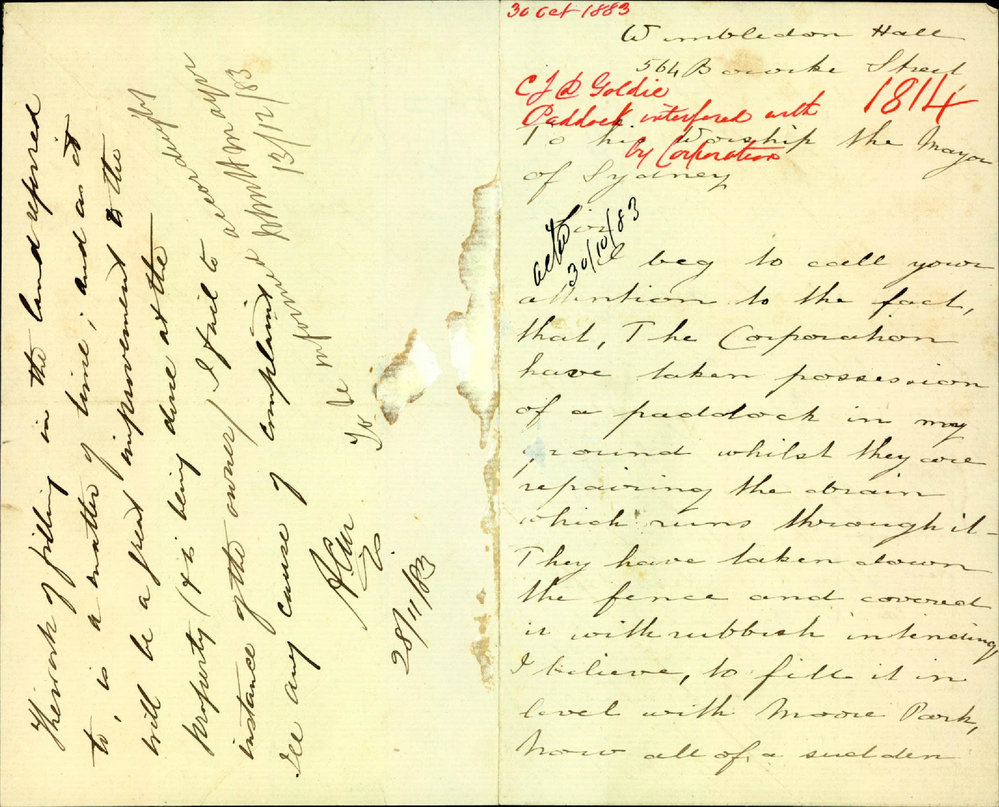 30 Oct 1883
Wimbledon Hall
564 Bourke Street
C J D Goldie
Paddock interfered with
by Corporation
1814
To his Worship the Mayor
of Sydney
Sir
30/10/83
I beg to call your
attention to the fact,
that, The Corporation
have taken possession
of a paddock in my
ground whilst they are
repairing the drain
which runs through it -
They have taken down
the fence and covered
it with rubbish intending
I believe, to fill it in
level with Moore Park,
Now all of a sudden
The work of filling in the land referred
to, is a matter of time; and as it
will be a great improvement to the
property (& is being done at the
instance of the owner) I fail to
see any cause of complaint
28/11/83
To be informed
accordingly
13/12/83